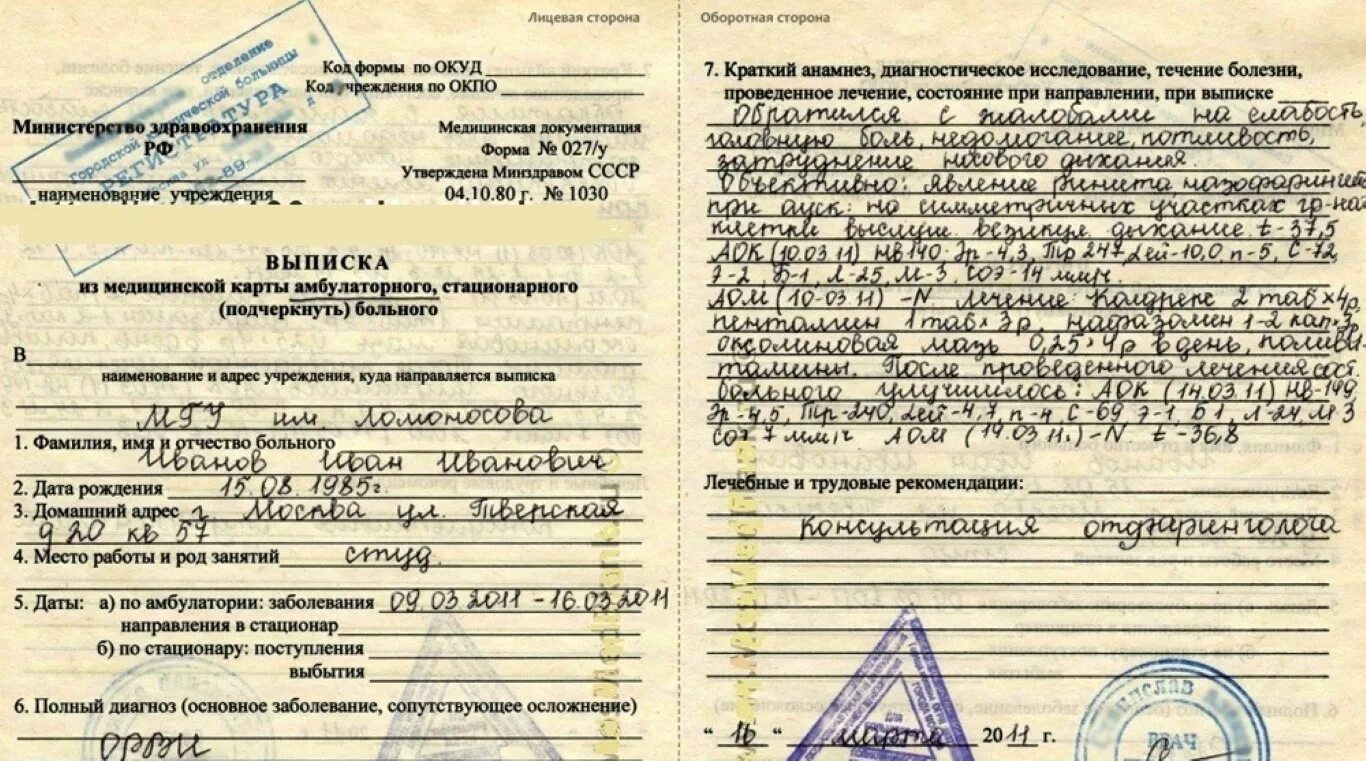 Лицевая сторона
отделение
Городской клинической больницы
РЕГИСТРАТУРА
Код формы по ОКУД
Код учреждения по ОКПО
Министерство здравоохранения
РФ
наименование учреждения
Медицинская документация
Форма № 027/у
Утверждена Минздравом СССР
04.10.80 г. № 1030
ВЫПИСКА
из медицинской карты амбулаторного, стационарного
(подчеркнуть) больного
В
наименование и адрес учреждения, куда направляется выписка
МГУ им. Ломоносова
1. Фамилия, имя и отчество больного
Иванов Иван Иванович
2. Дата рождения 15.08.1985г.
3. Домашний адрес г Москва ул. Тверская
д 20 кв 57
4. Место работы и род занятий студ.
5. Даты: а) по амбулатории: заболевания 09.03 2011 - 16.03 2011
направления в стационар
б) по стационару: поступления
выбытия
6. Полный диагноз (основное заболевание, сопутствующее осложнение)
ОРВИ
Оборотная сторона
7. Краткий анамнез, диагностическое исследование, течение болезни,
проведенное лечение, состояние при направлении, при выписке
Обратился с жалобами на слабость,
головную боль, недомогание, потливость,
затруднение носового дыхания.
Объективно: явление ринита назофарингит
при ауск: на симметричных участках гр-на
клетке выслуш. везикул дыхание. t-37,5
АОК (10.03 11) НВ 140 Эр-4,3, Тр 247, Лей-10,0, п-5, С-72,
Э-2, Б-1, Л-25, М-3, СОЭ-14 мм/ч.
АОМ (10-03 11) -N, лечение: Колдрекс 2 таб×4р,
пенталгин 1 таб× 3р, нафазамен 1-2 кап.3р
оксолиновая мазь 0,25×4р в день, поливи-
тамины. После проведенного лечения сост.
больного улучшилось: АОК (14.03 11) НВ-149,
Эр-4,5, Тр-240, Лей-4,7, п-4, С-69, Э-1, Б1, Л-24, М 3
Соэ 7 мм/ч АОМ (14.03 11.)-N t-36,8
Лечебные и трудовые рекомендации:
Консультация отоларинголога
" 16 " марта 2011 г.
ДЛЯ
ВРАЧ